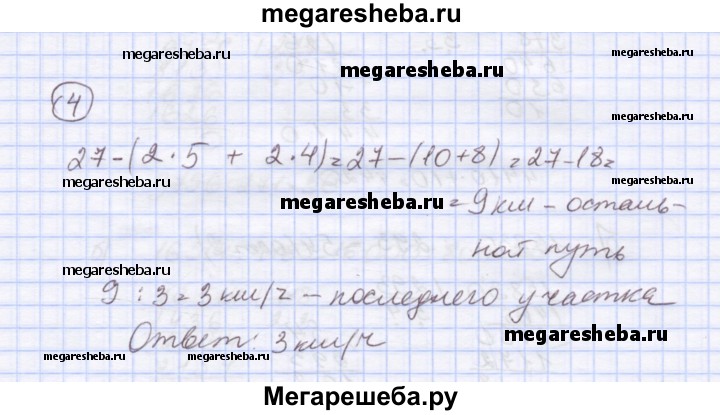 megaresheba.ru
megaresheba.ru
megaresheba.ru
megaresheba.ru
4
megaresheba.ru
27-(2·5 + 2·4)=27-(10+8)=27-18=
megaresheba.ru
megaresheba.ru
megaresheba.ru
=9км - осталь-
ной путь
megaresheba.ru
9 : 3 = 3 км/ч - последнего участка
Ответ: 3 км/ч
megaresheba.ru
megaresheba.ru
megaresheba.ru
megaresheba.ru
Мегарешеба.ру